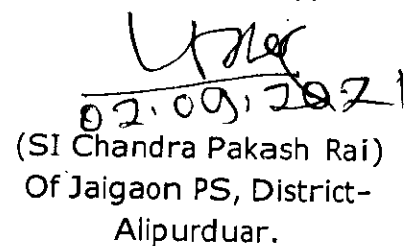 02.09.2021
(SI Chandra Pakash Rai)
Of Jaigaon PS, District-
Alipurduar.